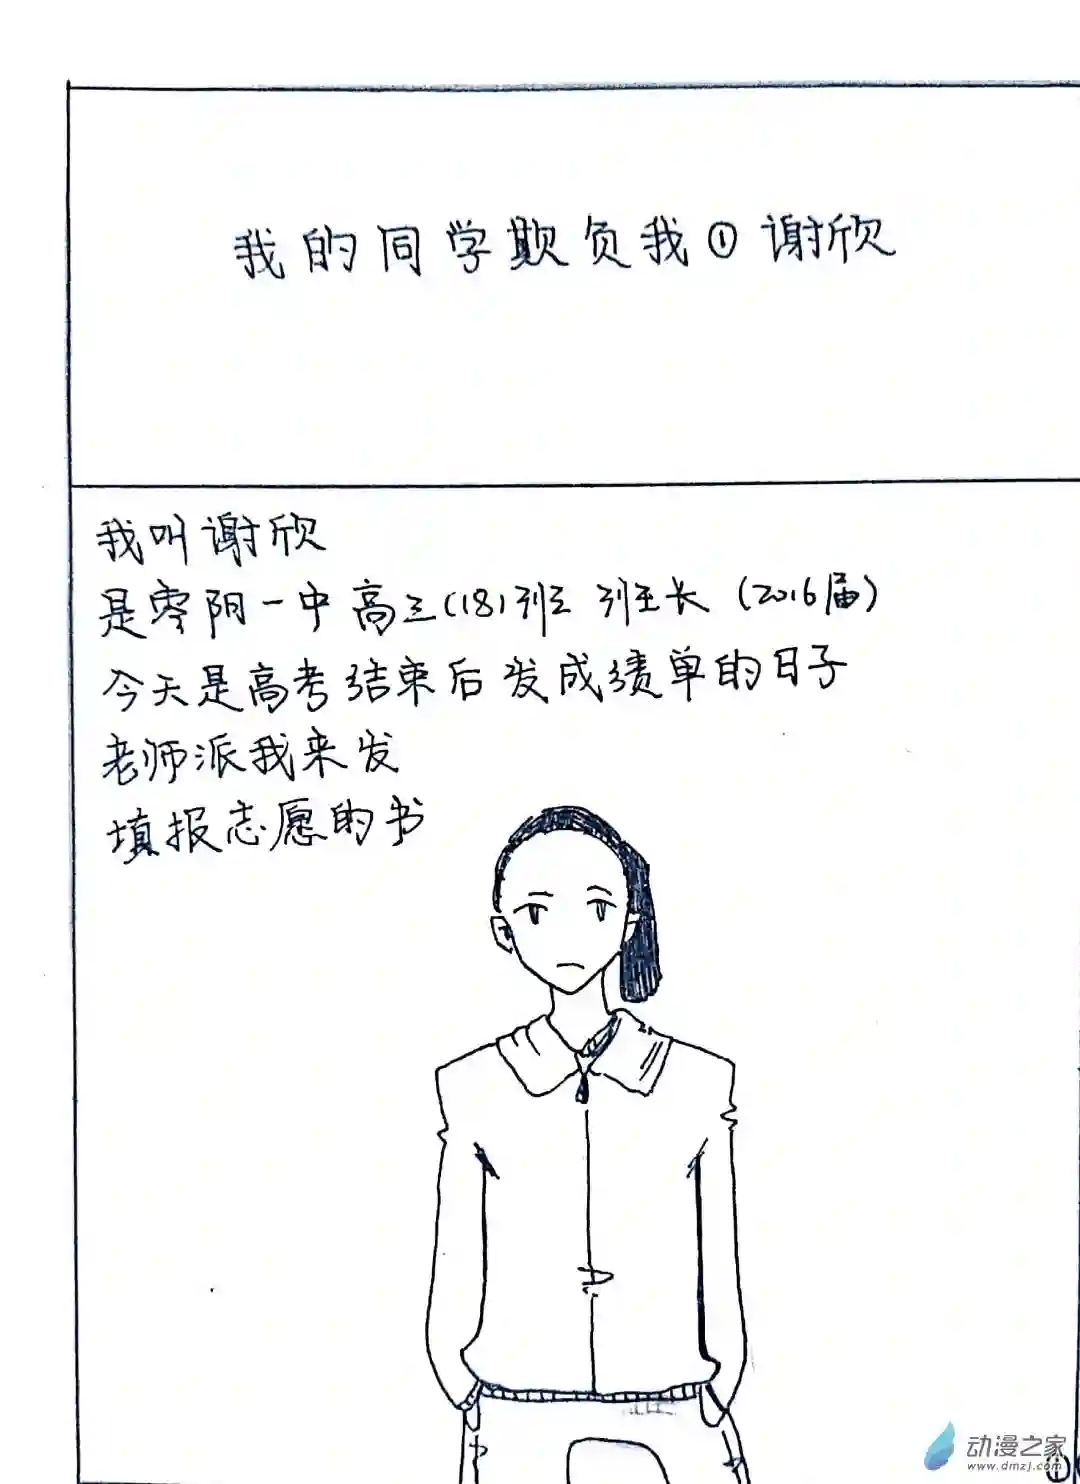 我的同学欺负我①谢欣
我叫谢欣
是零阳一中高三(18)班 班长 (2016届)
今天是高考结束后发成绩单的日子
老师派我来发
填报志愿的书
动漫之家
www.dmzj.com
①